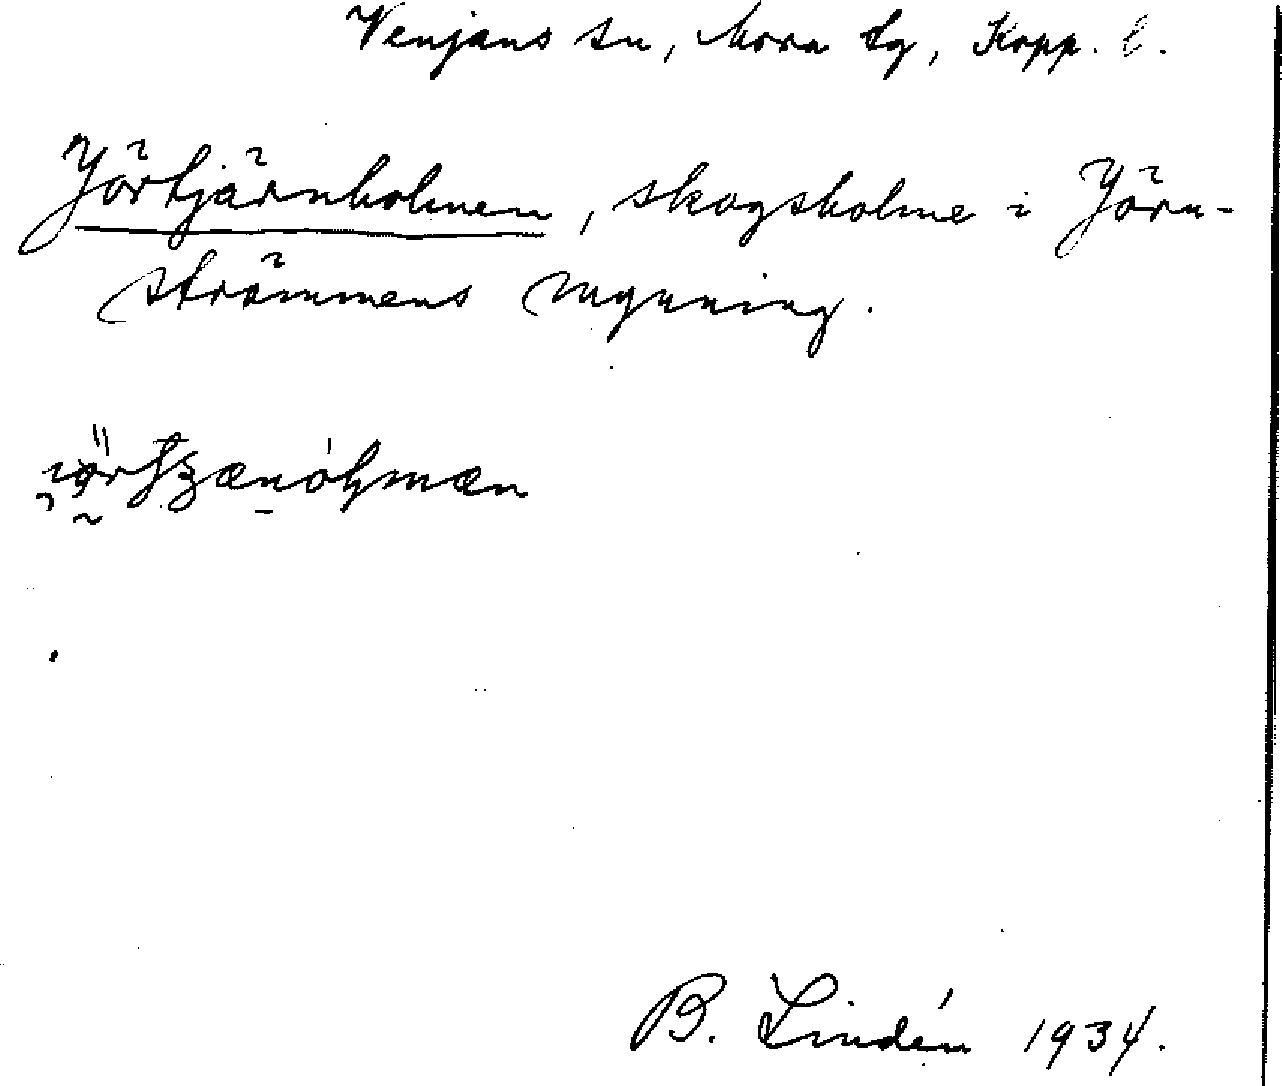 Venjans sn, Mora tg, Kopp. l.
Yörtjärnholmen, skogsholme i Yörn-
strömmens mynning.
B. Lindén 1934.